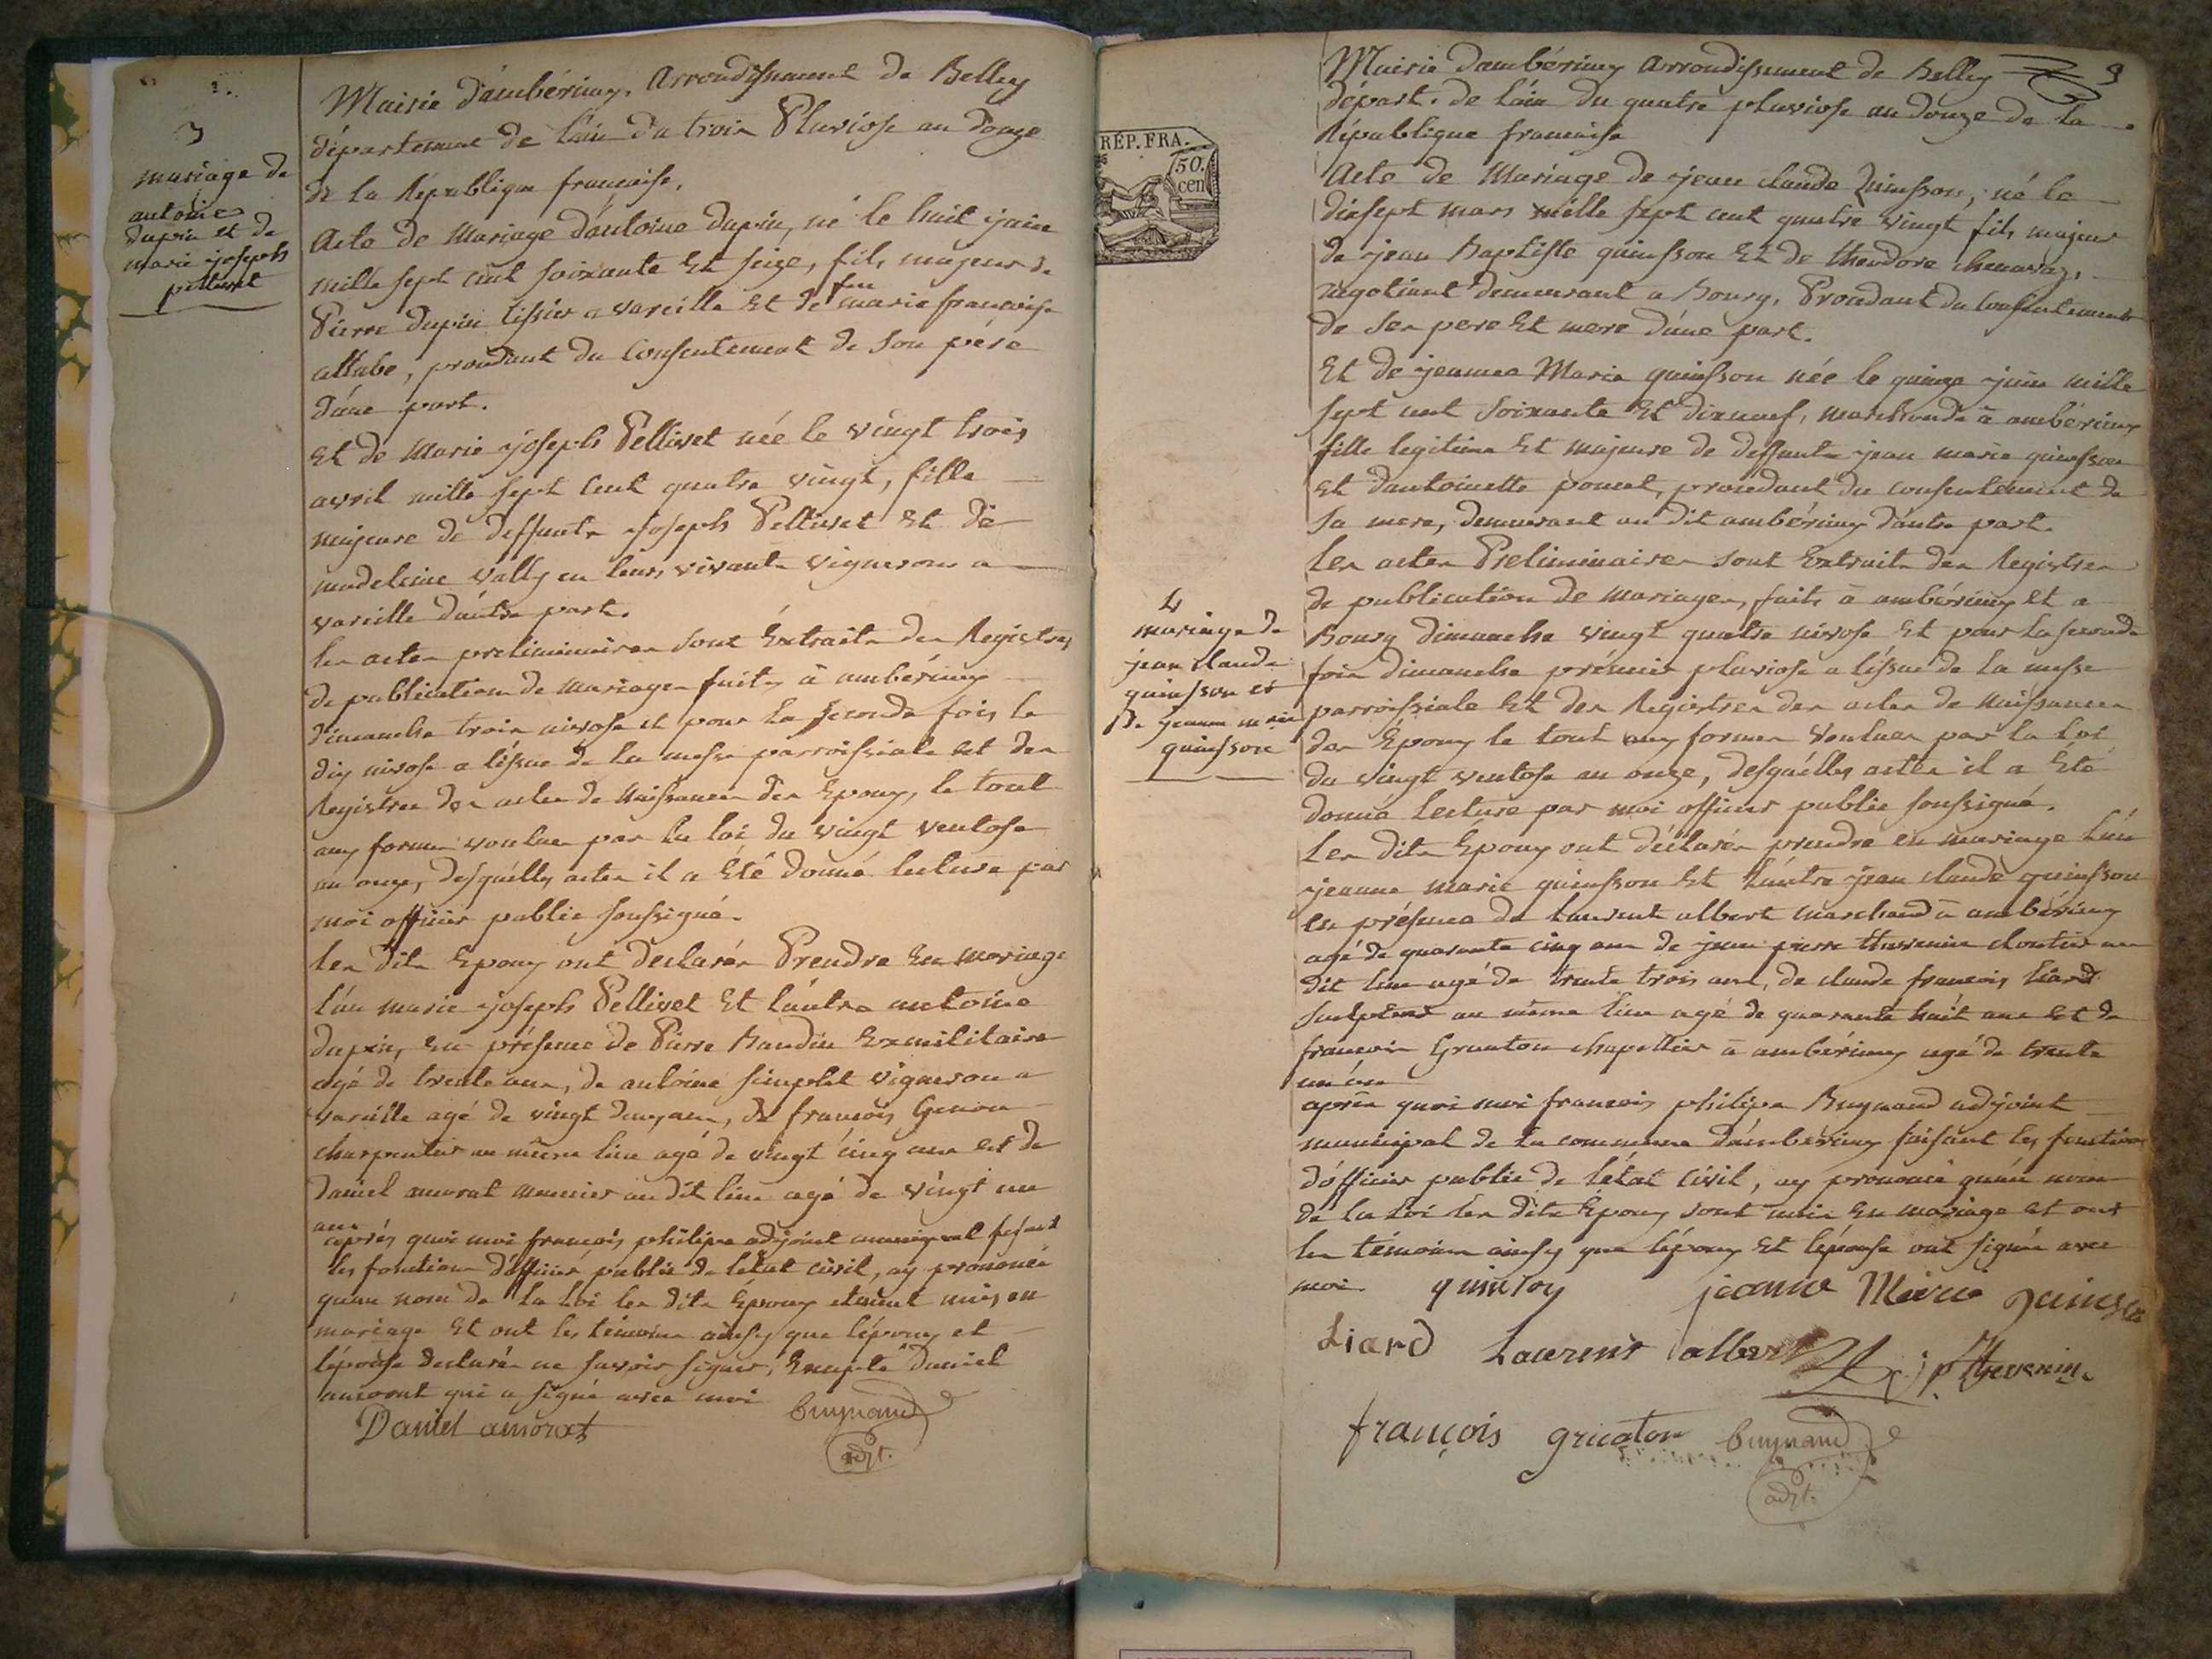 3
mariage de
antoine
dupin et de
marie joseph
pellivet
Mairie d'ambérieu, arrondissement de Belley
département de l'ain du trois Pluviose an douze
de la République française.
Acte de Mariage d'antoine dupin, né le huit juin
mille sept cent soixante Et seize, fils majeur de
Pierre dupin tissier a vareille Et de feu marie francoise
, procedant du Consentement de son père
d'une part.
Et de Marie joseph Pellivet née le vingt trois
avril mille sept Cent quatre vingt, fille
majeure de deffunts joseph Pellivet Et de
madeleine vally en leurs vivants vignerons a
vareille d'autre part.
les actes preliminaires sont Extraits des Registres
de publication de mariages faits à ambérieu
dimanche trois nivose et pour la seconde fois le
dix nivose a l'issue de la messe parroissiale et des
Registres des actes de Naissances des Epoux, le tout
aux formes voulues par la loi du vingt ventose
an onze, desquelles actes il a Eté donné lecture par
moi officier public soussigné.
les dits Epoux ont declarés Prendre En mariage
l'un marie joseph Pellivet Et l'autre antoine
dupin, En présence de Pierre Baudin Exmilitaire
agé de trente ans, de antoine simplet vigneron a
vareille agé de vingt deux ans, de françois Genou
charpentier au même lieu agé de vingt cinq ans et de
Daniel amorat meunier au dit lieu agé de vingt un
ans
après quoi moi françois philipe adjoint municipal fesant
les fonctions d'officier public de l'état civil, ay prononcé
qu'au nom de la Loi les dits Epoux etaient unis en
mariage Et ont les témoins ainsy que l'époux et
l'épouse declarés ne savoir signer, Excepté Daniel
amorat qui a signé avec moi
Daniel amorat buynand
adjt.
Mairie d'ambérieu arrondissement de Belley 9
départ. de l'ain du quatre pluviose an douze de la
République francaise
RÉP. FRA.
50.
cen
Acte de Mariage de jean claude Quinsson, né le
dixsept mars mille sept cent quatre vingt fils majeur
de jean Baptiste quinsson Et de theodore chenavaz,
negotiant demeurant a Bourg, Procedant du Consentement
de Ses pere Et mere d'une part.
Et de jeanne Marie quinsson née le quinze juin mille
sept cent Soixante Et dixneuf, marchande à ambérieu
fille legitime Et majeure de deffunt jean marie quinsson
et d'antoinette poncet, procedant du consentement de
sa mere, demeurant au dit ambérieu d'autre part.
les actes Preliminaires sont Extraits des Registres
de publication de Mariages, faits à ambérieu et a
Bourg dimanche vingt quatre nivose Et pour la seconde
fois dimanche premier pluviose a l'issue de la messe
parroissiale Et des Registres des actes de Naissances
des Epoux le tout aux formes Voulues par la Loi
du vingt ventose an onze, desquelles actes il a Eté
donné lecture par moi officier public soussigné.
4
mariage de
jean claude
quinsson et
de jeanne marie
quinsson
Les dits Epoux ont déclarés prendre en mariage l'un
jeanne marie quinsson Et l'autre jean claude quinsson
en présence de Laurent albert marchand à ambérieu
agé de quarante cinq ans de jean pierre thevenin cloutier au
dit lieu agé de trente trois ans, de claude françois Liard
sculpteur au même lieu agé de quarante huit ans et de
francois Gruaton chapellier à ambérieu agé de trente
un ans
après quoi moi francois philipe Buynand adjoint
municipal de la commune d'ambérieu faisant les fonctions
d'officier public de l'état Civil, ay prononcé qu'au nom
de la Loi les dits Epoux sont unis En mariage et ont
les témoins ainsy que l'époux Et l'épouse ont signés avec
moi quinsson jeanne Marie quinsson
Liard Laurent albert jp thevenin
françois gruaton buynand
adjt.